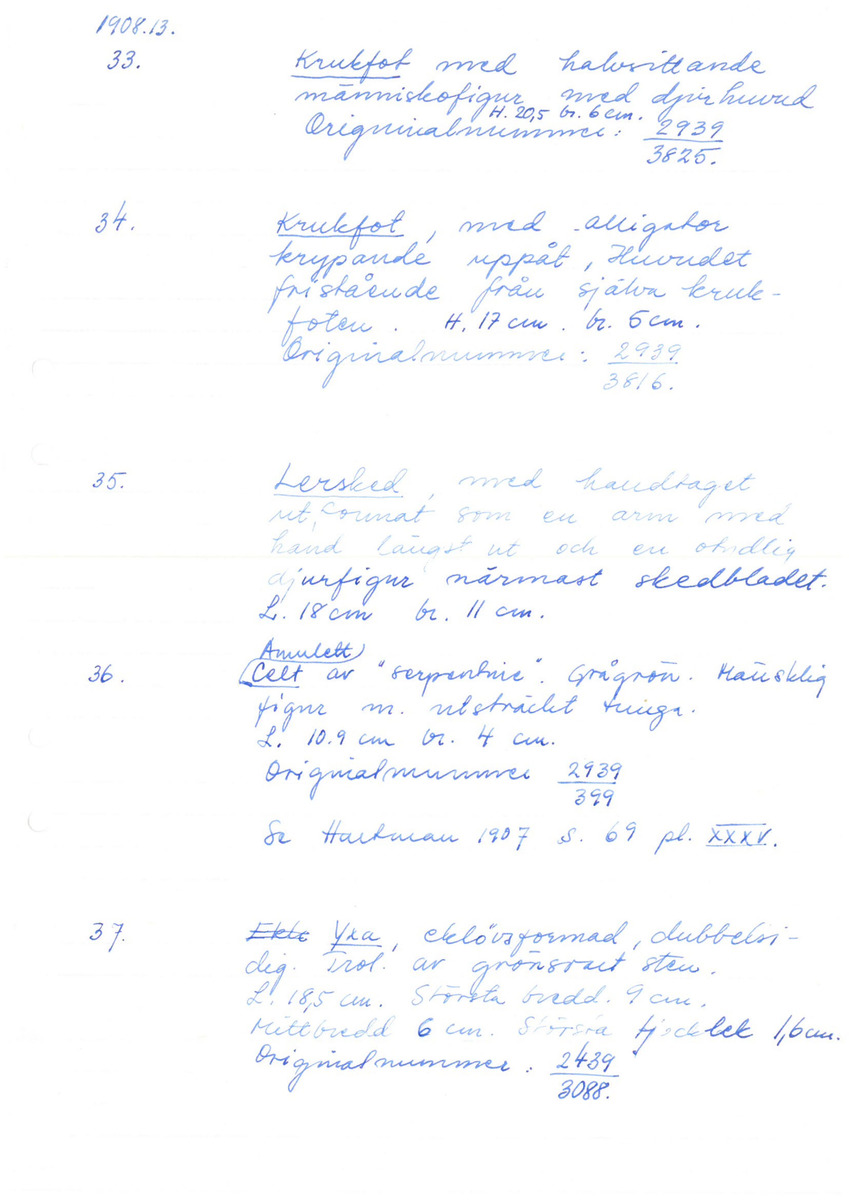 1908.13.
33. Krukfot med halvsittande
människofigur med djurhuvud
H. 20,5 br. 6 cm.
Originalnummer: 2939
3825.
34. Krukfot, med alligator
krypande uppåt, Huvudet
fristående från själva kruk-
foten. H. 17 cm. br. 5 cm.
Originalnummer: 2939
3816.
35. Lersked, med handtaget
utformat som en arm med
hand längst ut och en otydlig
djurfigur närmast skedbladet.
L. 18 cm br. 11 cm.
Amulett
36. Celt av "serpentine". Grågrön. Mänsklig
figur m. utsträckt tunga.
L. 10.9 cm br. 4 cm.
Originalnummer 2939
399
Se Hartman 1907 s. 69 pl. XXXV.
37. Ekl Yxa, eklövsformad, dubbelsi-
dig. Trol. av grönsvart sten.
L. 18,5 cm. Största bredd. 9 cm.
Mittbredd 6 cm. Största tjocklek 1,6 cm.
Originalnummer: 2439
3088.